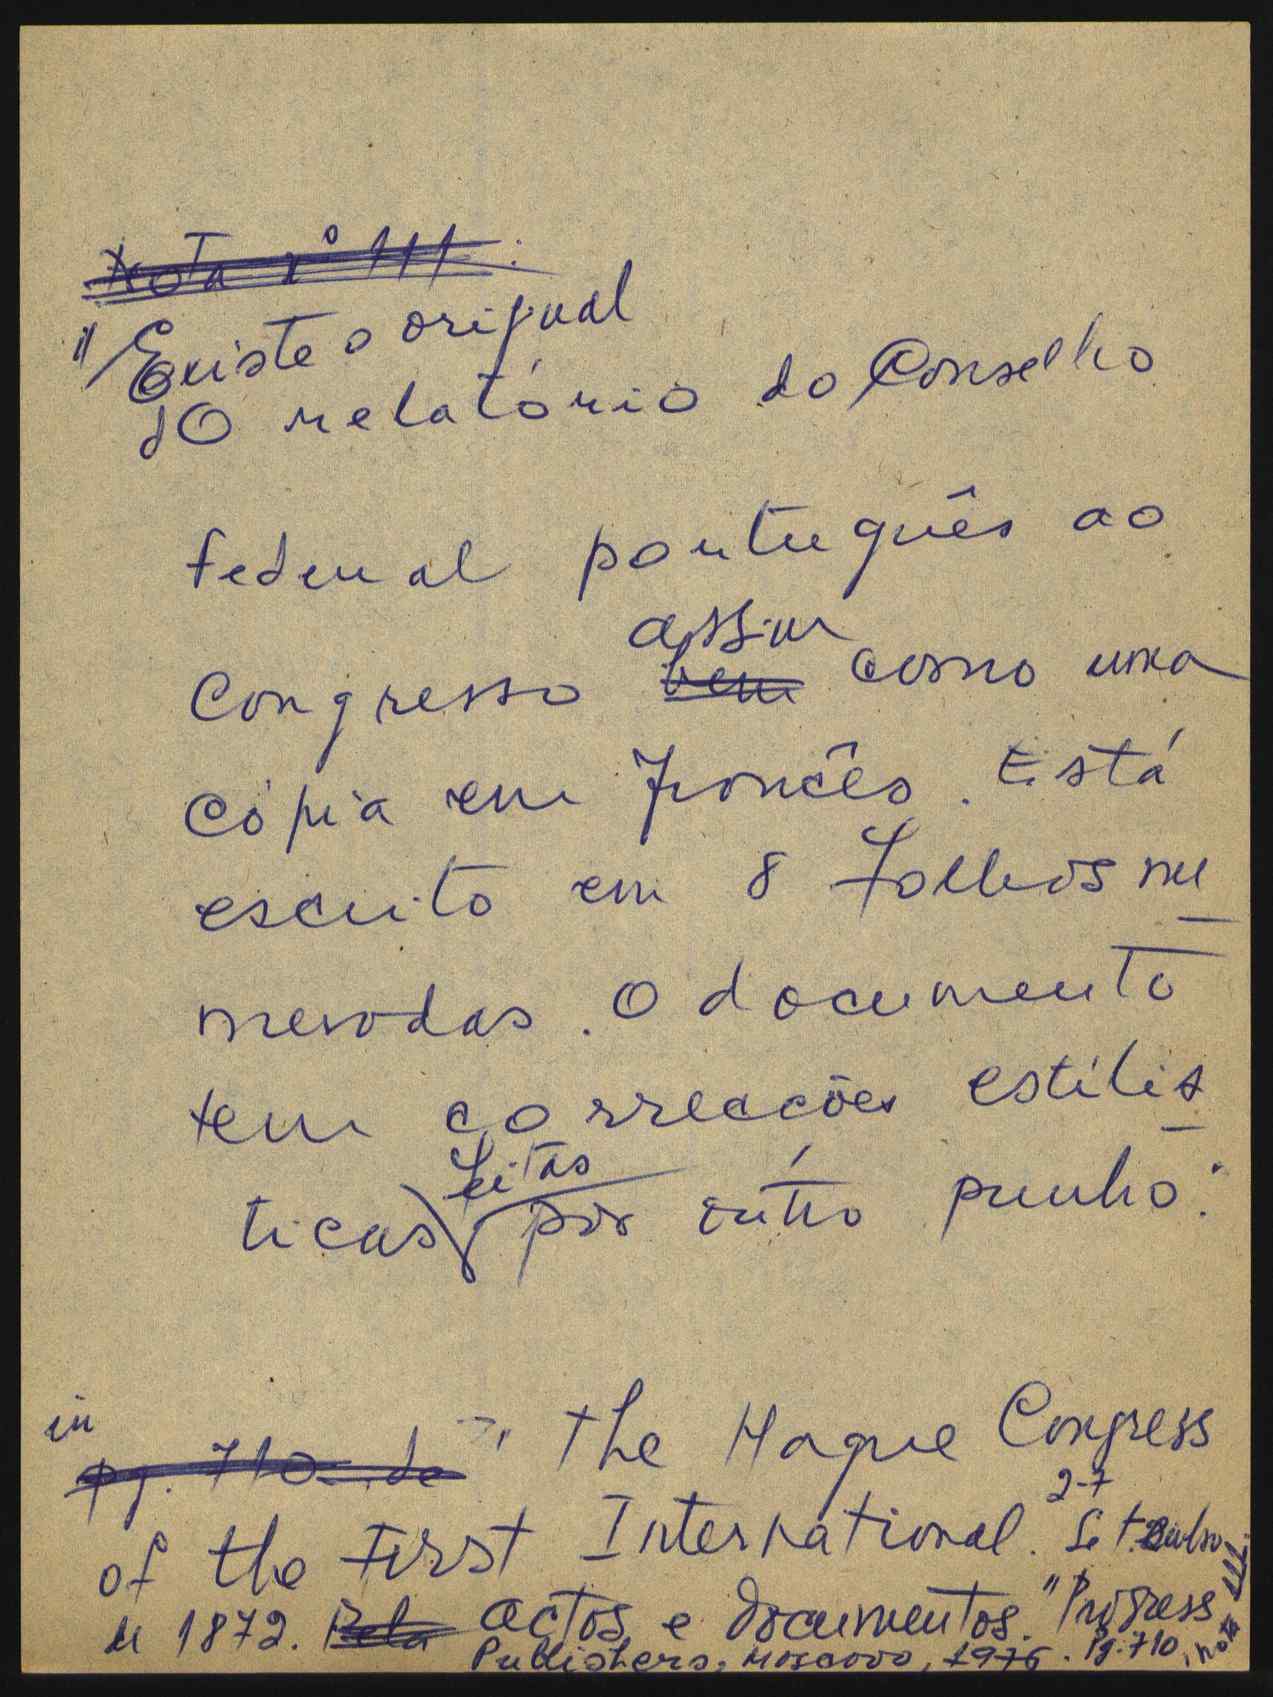 Nota nº 111.
"Existe o original
do relatório do Conselho
federal português ao
Congresso bem assim como uma
cópia em francês. Está
escrito em 8 folhas nu
meradas. O documento
tem correcções estilís
ticas feitas por outro punho."
in
pg. 710 de "The Hague Congress
of the First International. 2-7 Setembro
de 1872. Actos e documentos." Progress
Publishers, Moscovo, 1976. Pg. 710, nota 111.